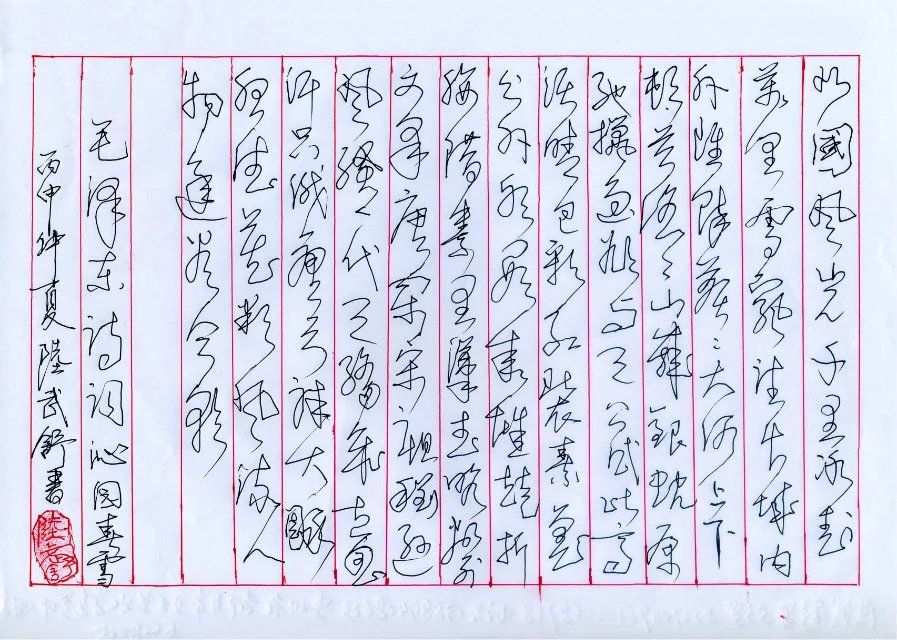 北國風光千里冰封
萬里雪飄望長城內
外惟餘莽々大河上下
頓失滔々山舞銀蛇原
馳蠟象欲与天公試比高
須晴日看紅裝素裹
分外妖嬈英雄競折
腰惜秦皇漢武略輸
文采唐宗宋祖稍遜
風騷一代天驕成吉思
汗只識彎弓射大雕
俱往矣數風流人
物還看今朝
毛澤东詩詞沁园春雪
丙申仲夏陸武舒書